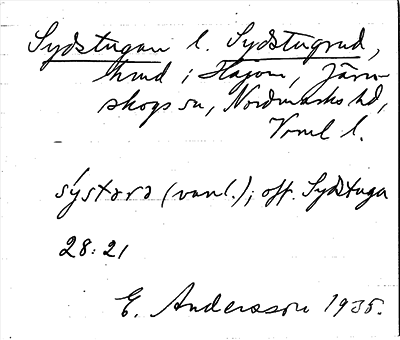 Sydstugan l. Sydstugrud,
hmd i Högom, Järn-
skogs sn, Nordmarks hd,
Vrml l.
sýstᴔrᴔ (vanl.); off. Sydstuga
28:21
E. Andersson 1935.